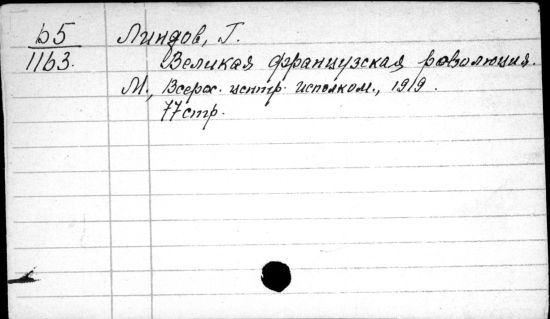 b5 Линдов, Г.
1163. Великая французская революция.
М., Всерос. центр. исполком., 1919.
77 стр.